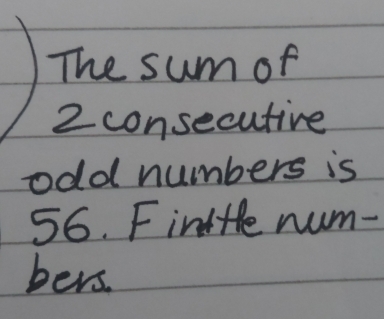 The sum of
2 consecutive
odd numbers is
56. Find the num-
bers.